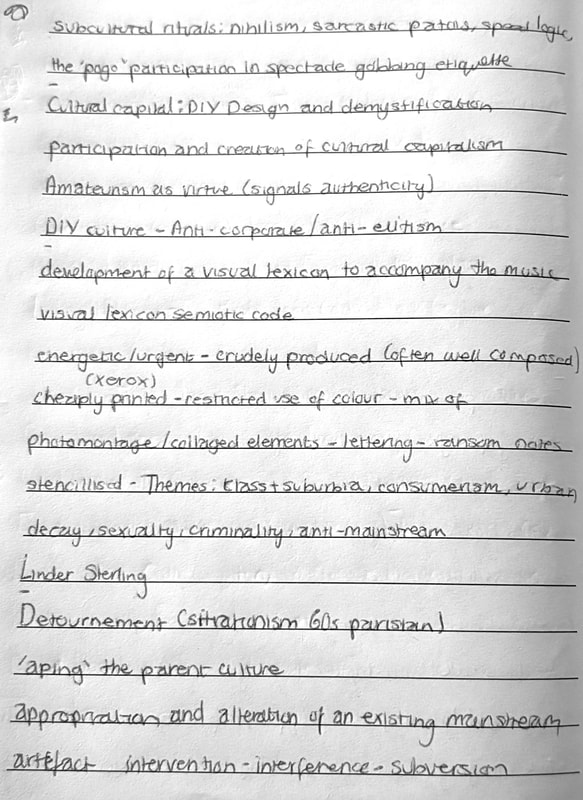 Subcultural rituals: nihilism, sarcastic patois, speed logic,
the 'pogo' participation in spectacle gobbing etiquette
Cultural capital: DIY Design and demystification
participation and creation of cultural capitalism
Amateurism as virtue (signals authenticity)
DiY culture - Anti-corporate/anti-elitism
development of a visual lexicon to accompany the music
visual lexicon semiotic code
energetic/urgent - crudely produced (often well composed)
(xerox)
cheaply printed - restricted use of colour - mix of
photomontage/collaged elements - lettering - ransom notes
stencillised - Themes: class + suburbia, consumerism, urban
decay, sexualty, criminality, anti-mainstream
Linder Sterling
Detournement (sitrationism 60s parisian)
'aping' the parent culture
appropriation and alteration of an existing mainstream
artefact intervention - interference - subversion